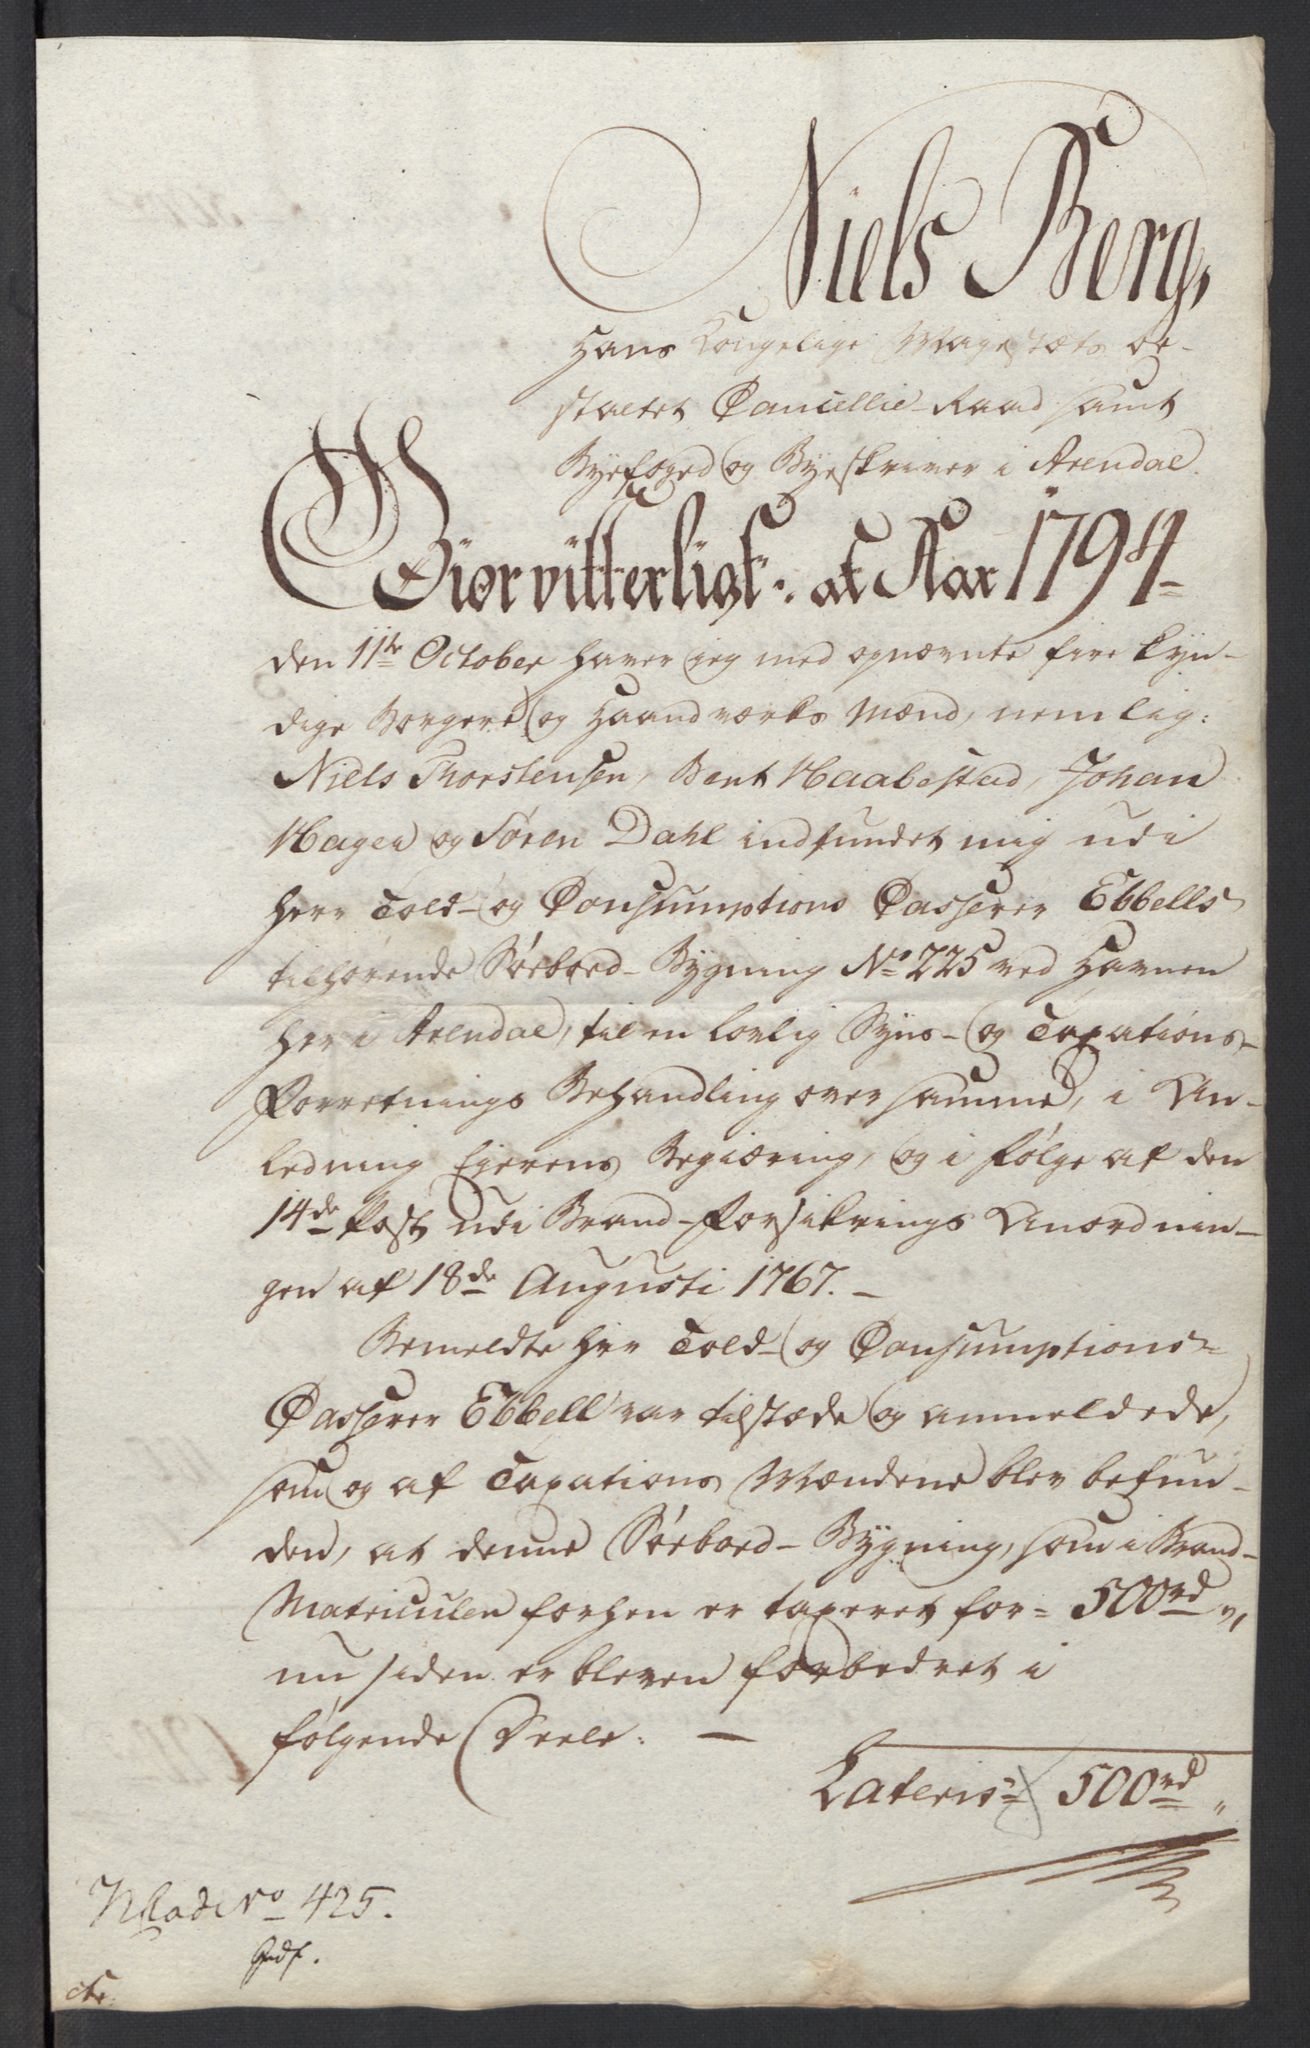 Niels Berg,
Hans Kongelige Mayestæts be-
staltet Cancellie-Raad samt
Byefoged og Byeskriver i Arendal.
Giør vitterligt: at Aar 1794
den 11te October haver jeg med opnævnte fire kyn-
dige Borgere og Haandværks Mænd, nemlig:
Niels Thorstensen, Bent Haabestad, Johan
Hagen og Søren Dahl indfundet mig udi
Herr Told- og Consumptions Casserer Ebbells
tilhørende Søebod-Bygning No 225 ved Havnen
her i Arendal, til en lovlig Syns- og Taxations-
Forretnings Behandling over samme, i An-
ledning Eyerens Begiæring, og i følge af den
14de Post udi Brand-Forsikrings Anordnin-
gen af 18de Augusti 1767.
Bemeldte Herr Told- og Consumptions-
Casserer Ebbell var tilstæde og anmeldede,
som og af Taxations Mændene blev befun-
den, at denne Søebod-Bygning, som i Brand-
Matriculen forhen er taxeret for 500rd,
nu siden er bleven forbedret i
følgende Deele:
Lateris 500rd
No 425.